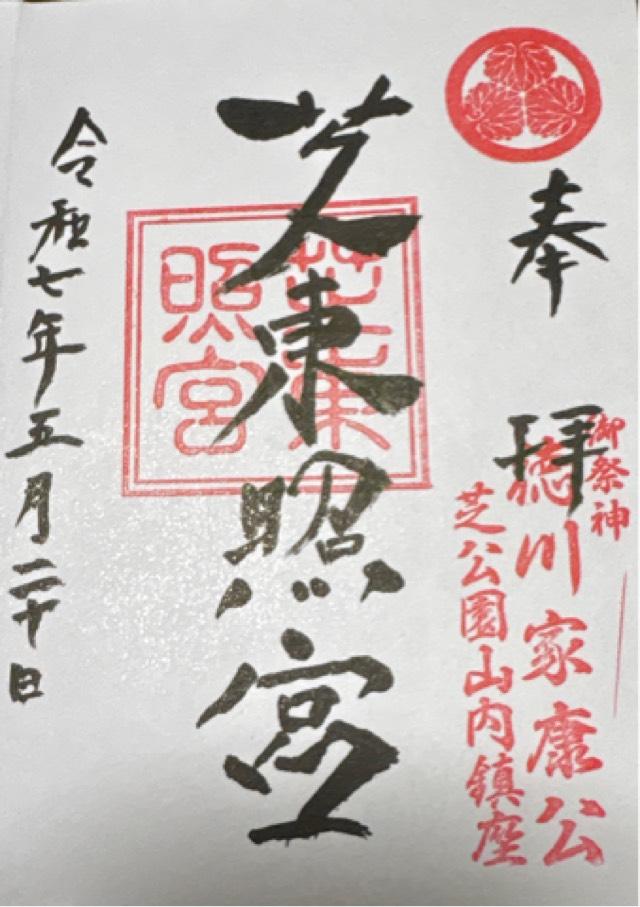 奉拝
御祭神
徳川家康公
芝公園山内鎮座
芝東照宮
芝東照宮
令和七年五月二十日